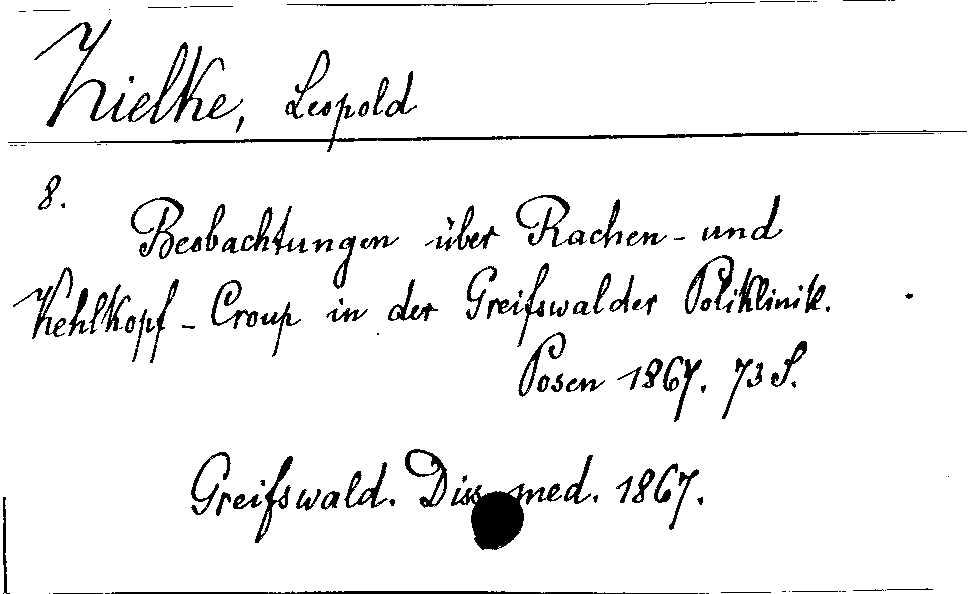 Zielke, Leopold
8.
Beobachtungen über Rachen- und
Kehlkopf-Croup in der Greifswalder Poliklinik.
Posen 1867. 73 S.
Greifswald. Diss. med. 1867.